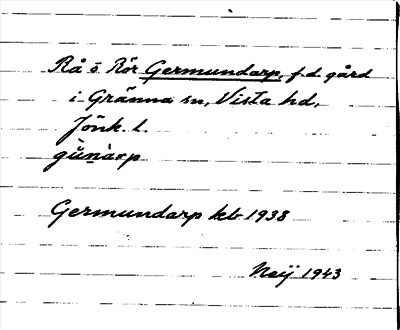 Rå o. Rör Germundarp, f.d. gård
i Gränna sn, Vista hd,
Jönk. l.
gùnàrp
Germundarp kb 1938
Neij 1943